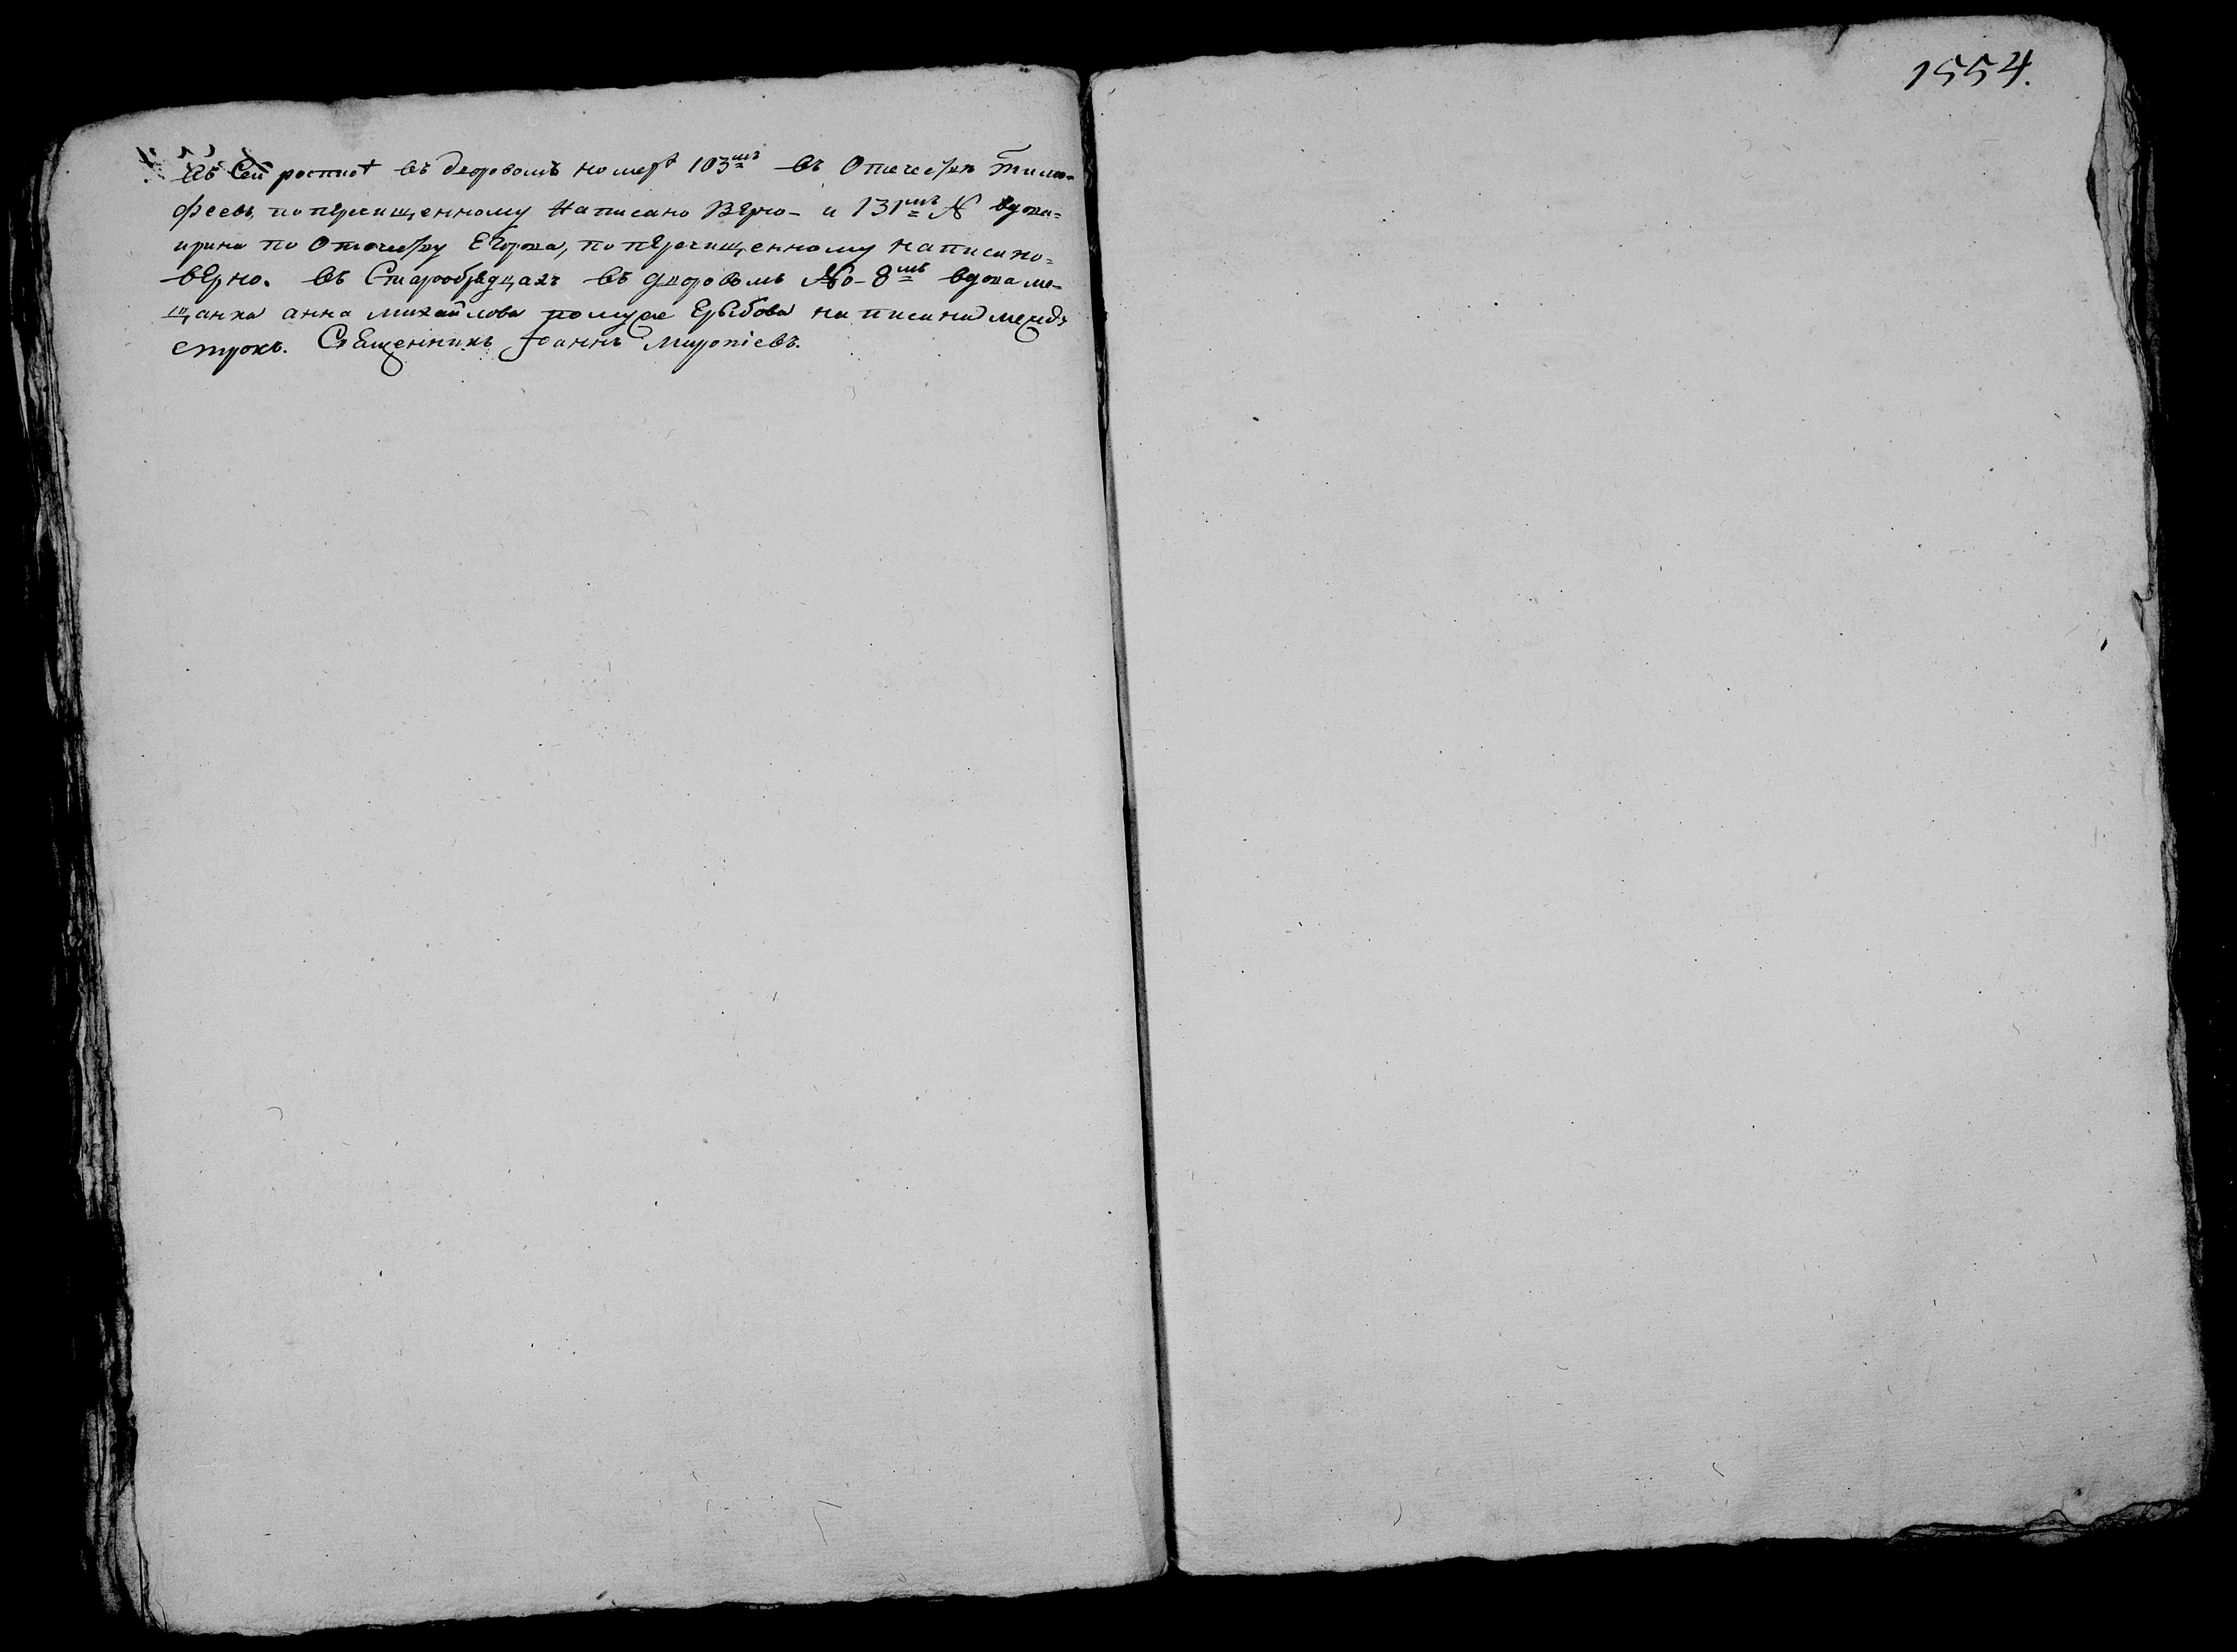 1554.
Въ сей росписѣ въ дворовомъ номерѣ 103мъ въ отечествѣ Тимо=
феевъ, по перечищенному написано верно – и 131мъ № вдова=
ирина по отечеству Егорова, по перечищенному написано=
верно. въ Старообрядцахъ въ дворовомъ №о – 8мъ вдова ме=
щанка анна михайлова по муже написана между
строкъ. Священникъ Iоаннъ